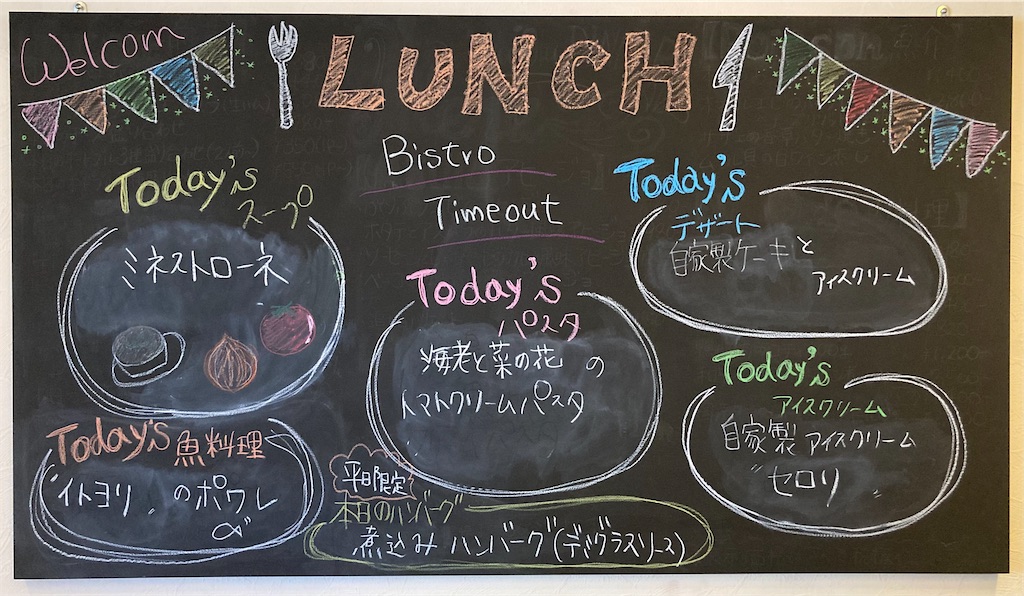 Welcom
LUNCH
Bistro
Timeout
Today's
スープ
ミネストローネ
Today's
パスタ
海老と菜の花の
トマトクリームパスタ
Today's
デザート
自家製ケーキと
アイスクリーム
Today's
アイスクリーム
自家製アイスクリーム
セロリ
Today's 魚料理
イトヨリ のポワレ
平日限定
本日のハンバーグ
煮込みハンバーグ(デミグラスソース)